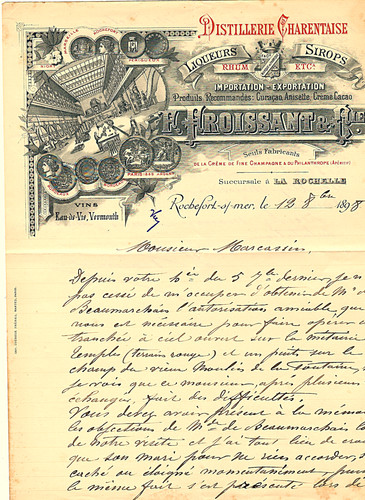 DISTILLERIE CHARENTAISE
LIQUEURS SIROPS
RHUM ETC.
IMPORTATION - EXPORTATION
Produits Recommandés: Curaçao, Anisette, Crème Cacao
F. FROISSANT & Cie
Seuls Fabricants
DE LA CRÈME DE FINE CHAMPAGNE & DU PHILANTHROPE (APÉRITIF)
Succursale à LA ROCHELLE
VINS
Eau-de-Vie, Vermouth
Rochefort s/ mer, le 12 8bre 1898
Monsieur Marcassin,
Depuis votre du 5 7bre dernier, je n'ai
pas cessé de m'occuper d'obtenir de Mr
Beaumarchais l'autorisation amiable, que
nous est nécessaire pour faire opérer
tranchée à ciel ouvert sur la métairie
Temple (terrain rouge) et un puits sur le
champ du vieux Moulin de la
je vois que ce monsieur, après plusieurs
échanges, fait des difficultés.
Vous devez avoir présent à la mémoire
les objections de Mde de Beaumarchais
de notre visite et j'ai tout lieu de
que son mari pour ne rien accorder,
caché ou éloigné momentanément,
le même fait s'est présenté